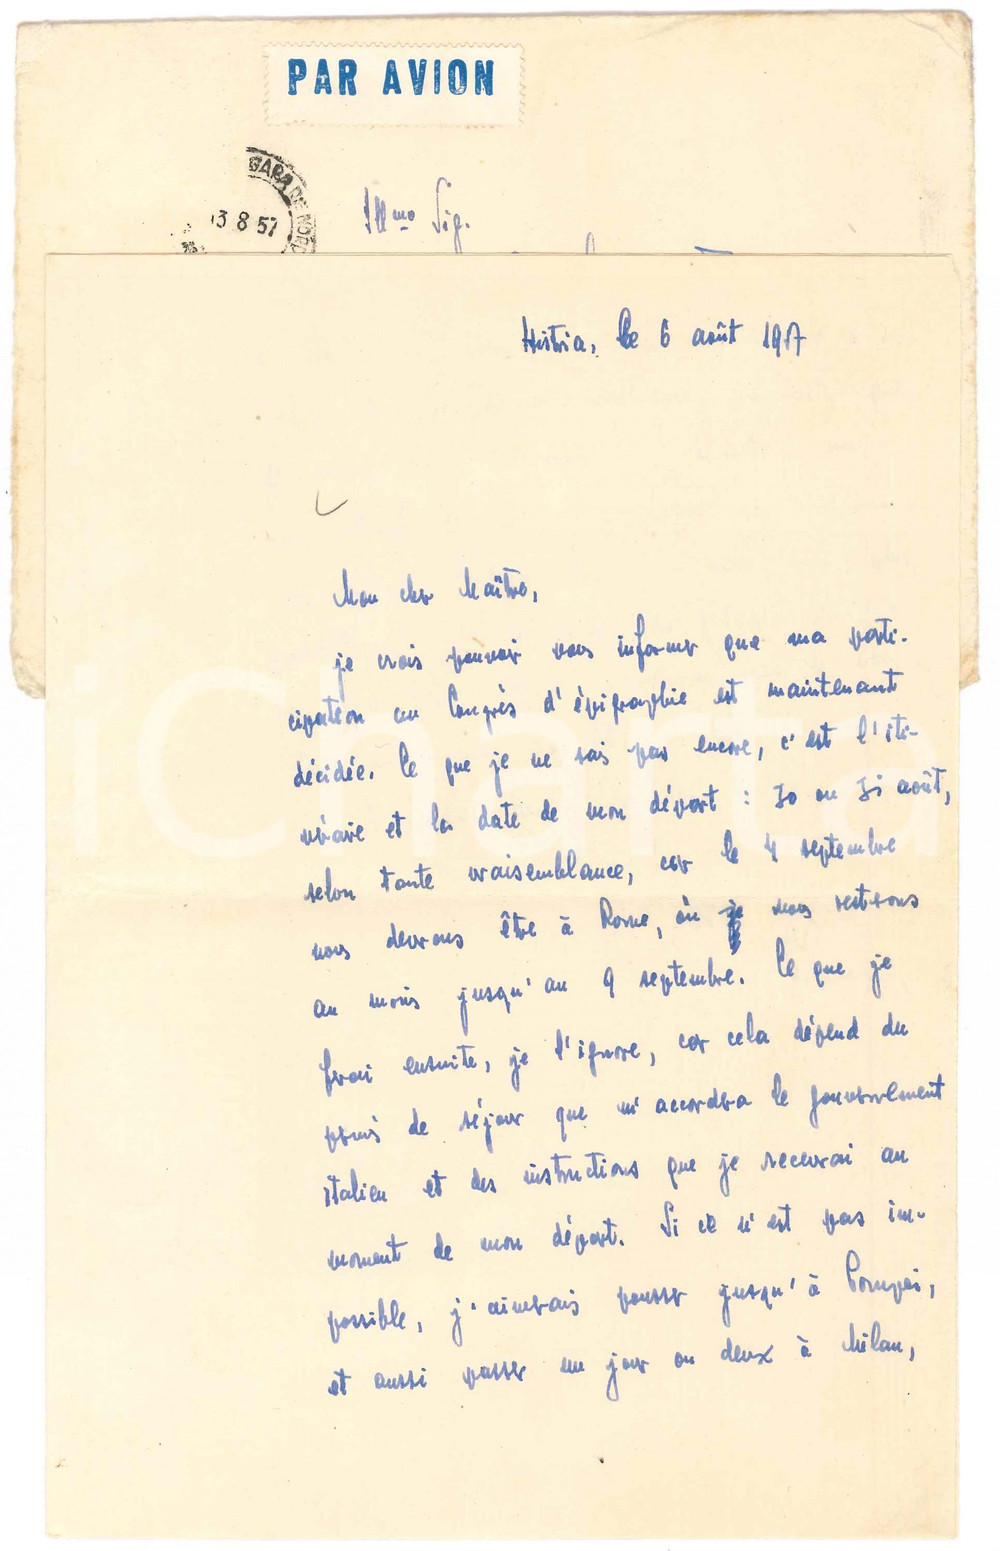 PAR AVION
GARA DE NORD
13 8 57
Ill.mo Sig.
Histria, le 6 août 1957
Mon cher Maître,
je crois pouvoir vous informer que ma parti-
cipation au Congrès d'épigraphie est maintenant
décidée. Ce que je ne sais pas encore, c'est l'iti-
néraire et la date de mon départ : 30 ou 31 août,
selon toute vraisemblance, car le 4 septembre
nous devrons être à Rome, où nous resterons
au moins jusqu'au 9 septembre. Ce que je
ferai ensuite, je l'ignore, car cela dépend du
permis de séjour que m'accordera le gouvernement
italien et des instructions que je recevrai au
moment de mon départ. Si ce n'est pas im-
possible, j'aimerais pousser jusqu'à Pompei,
et aussi passer un jour ou deux à Milan,
iCharta